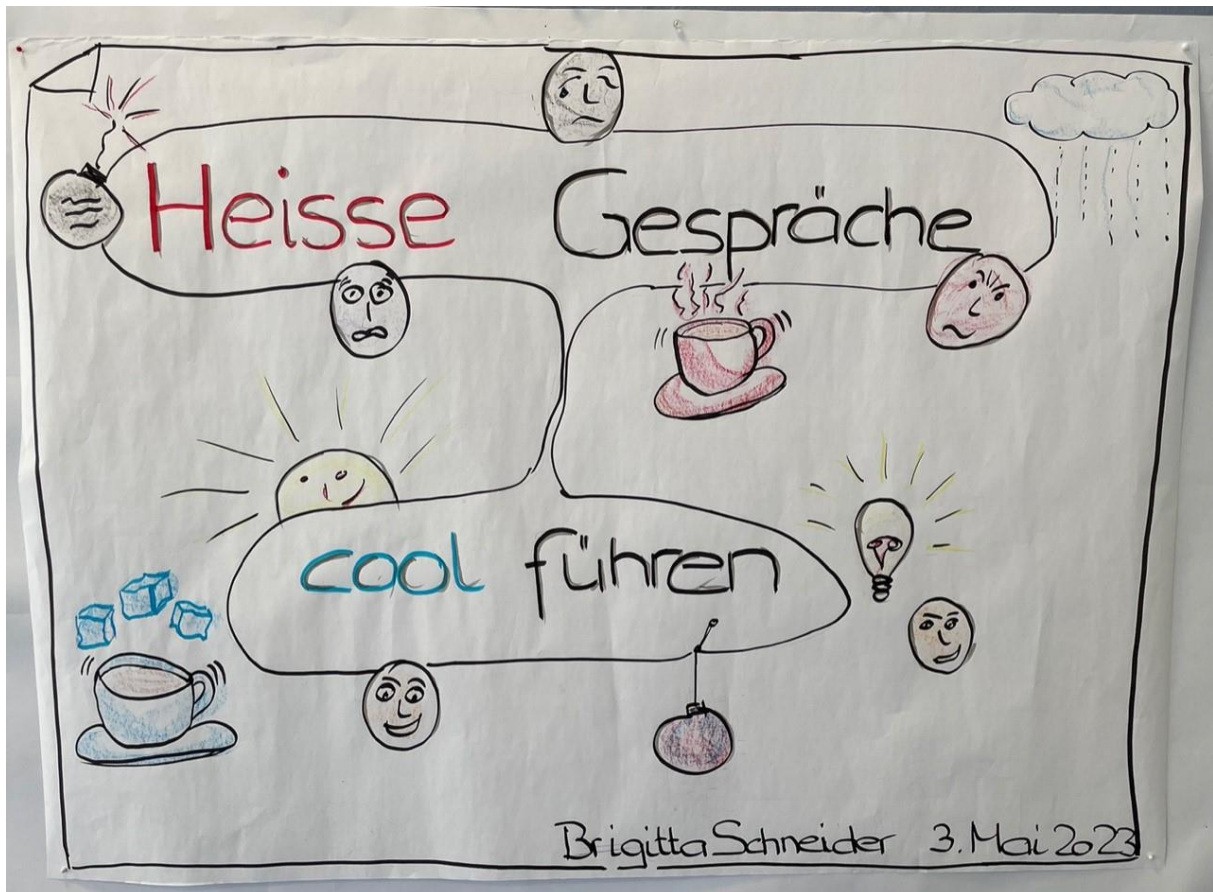 Heisse Gespräche
cool führen
Brigitta Schneider 3. Mai 2023